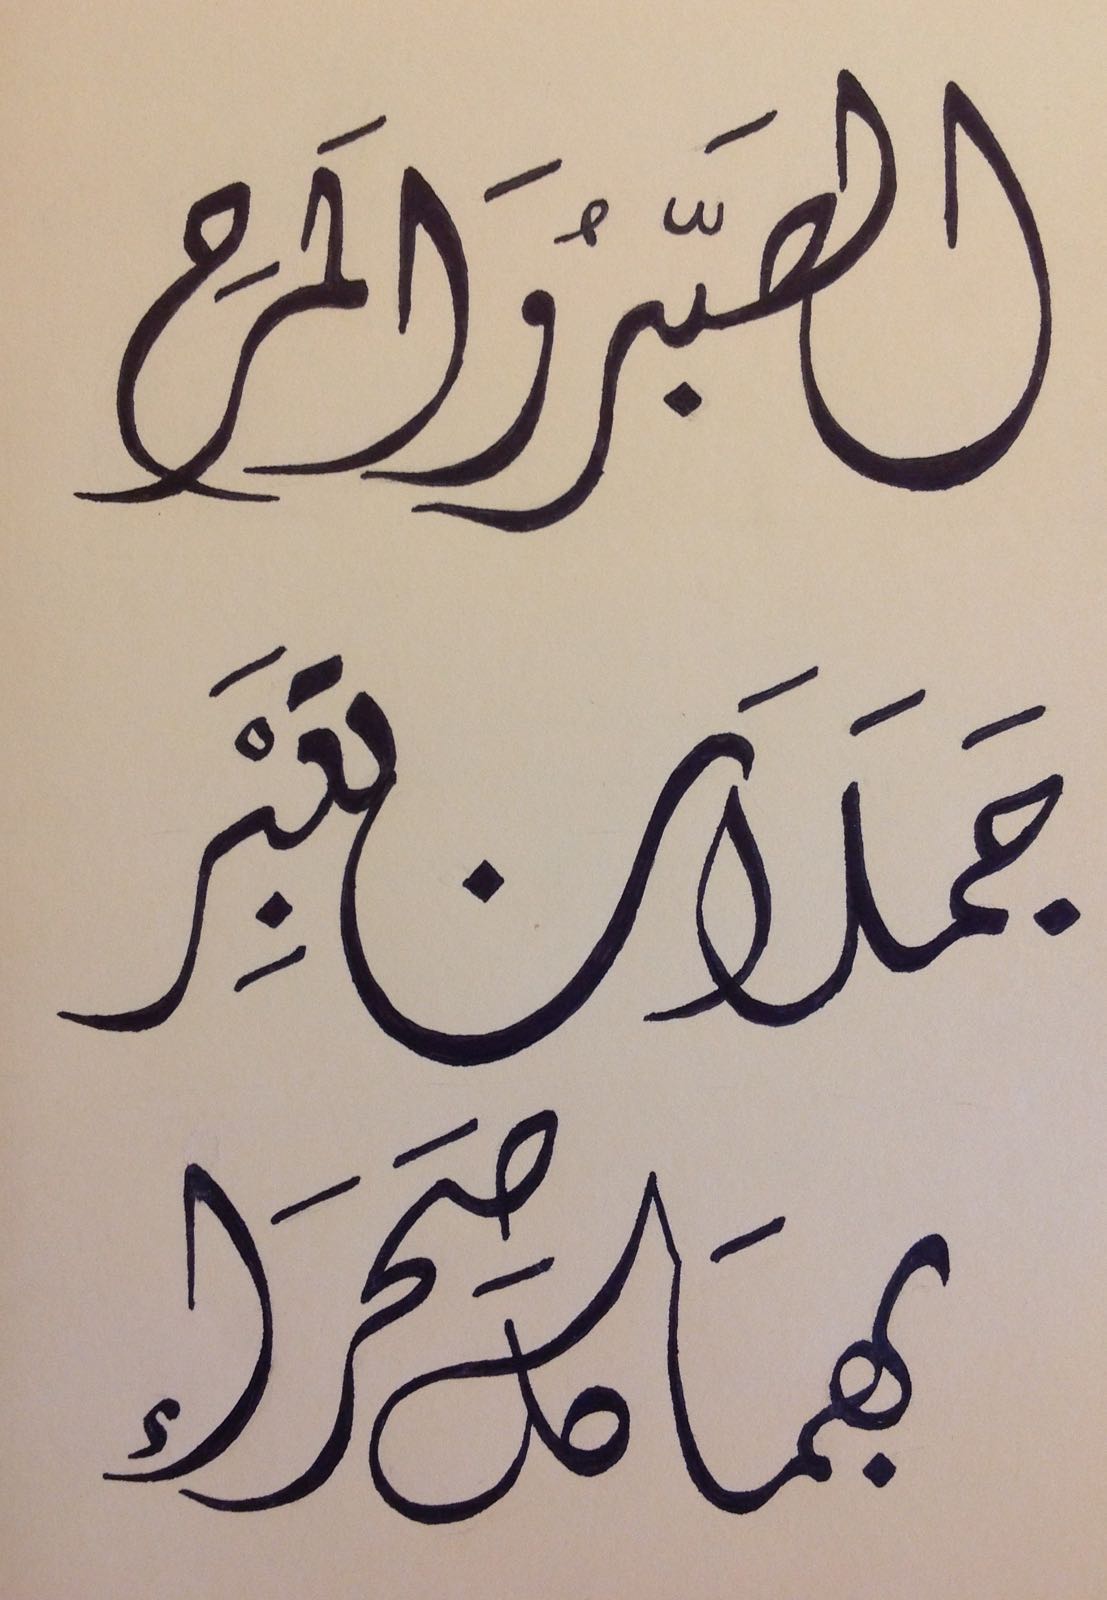 الصَّبرُ وَالمَرَح
جَمَلَان تَعْبِر
بهمَا كلَ صَحرَاء